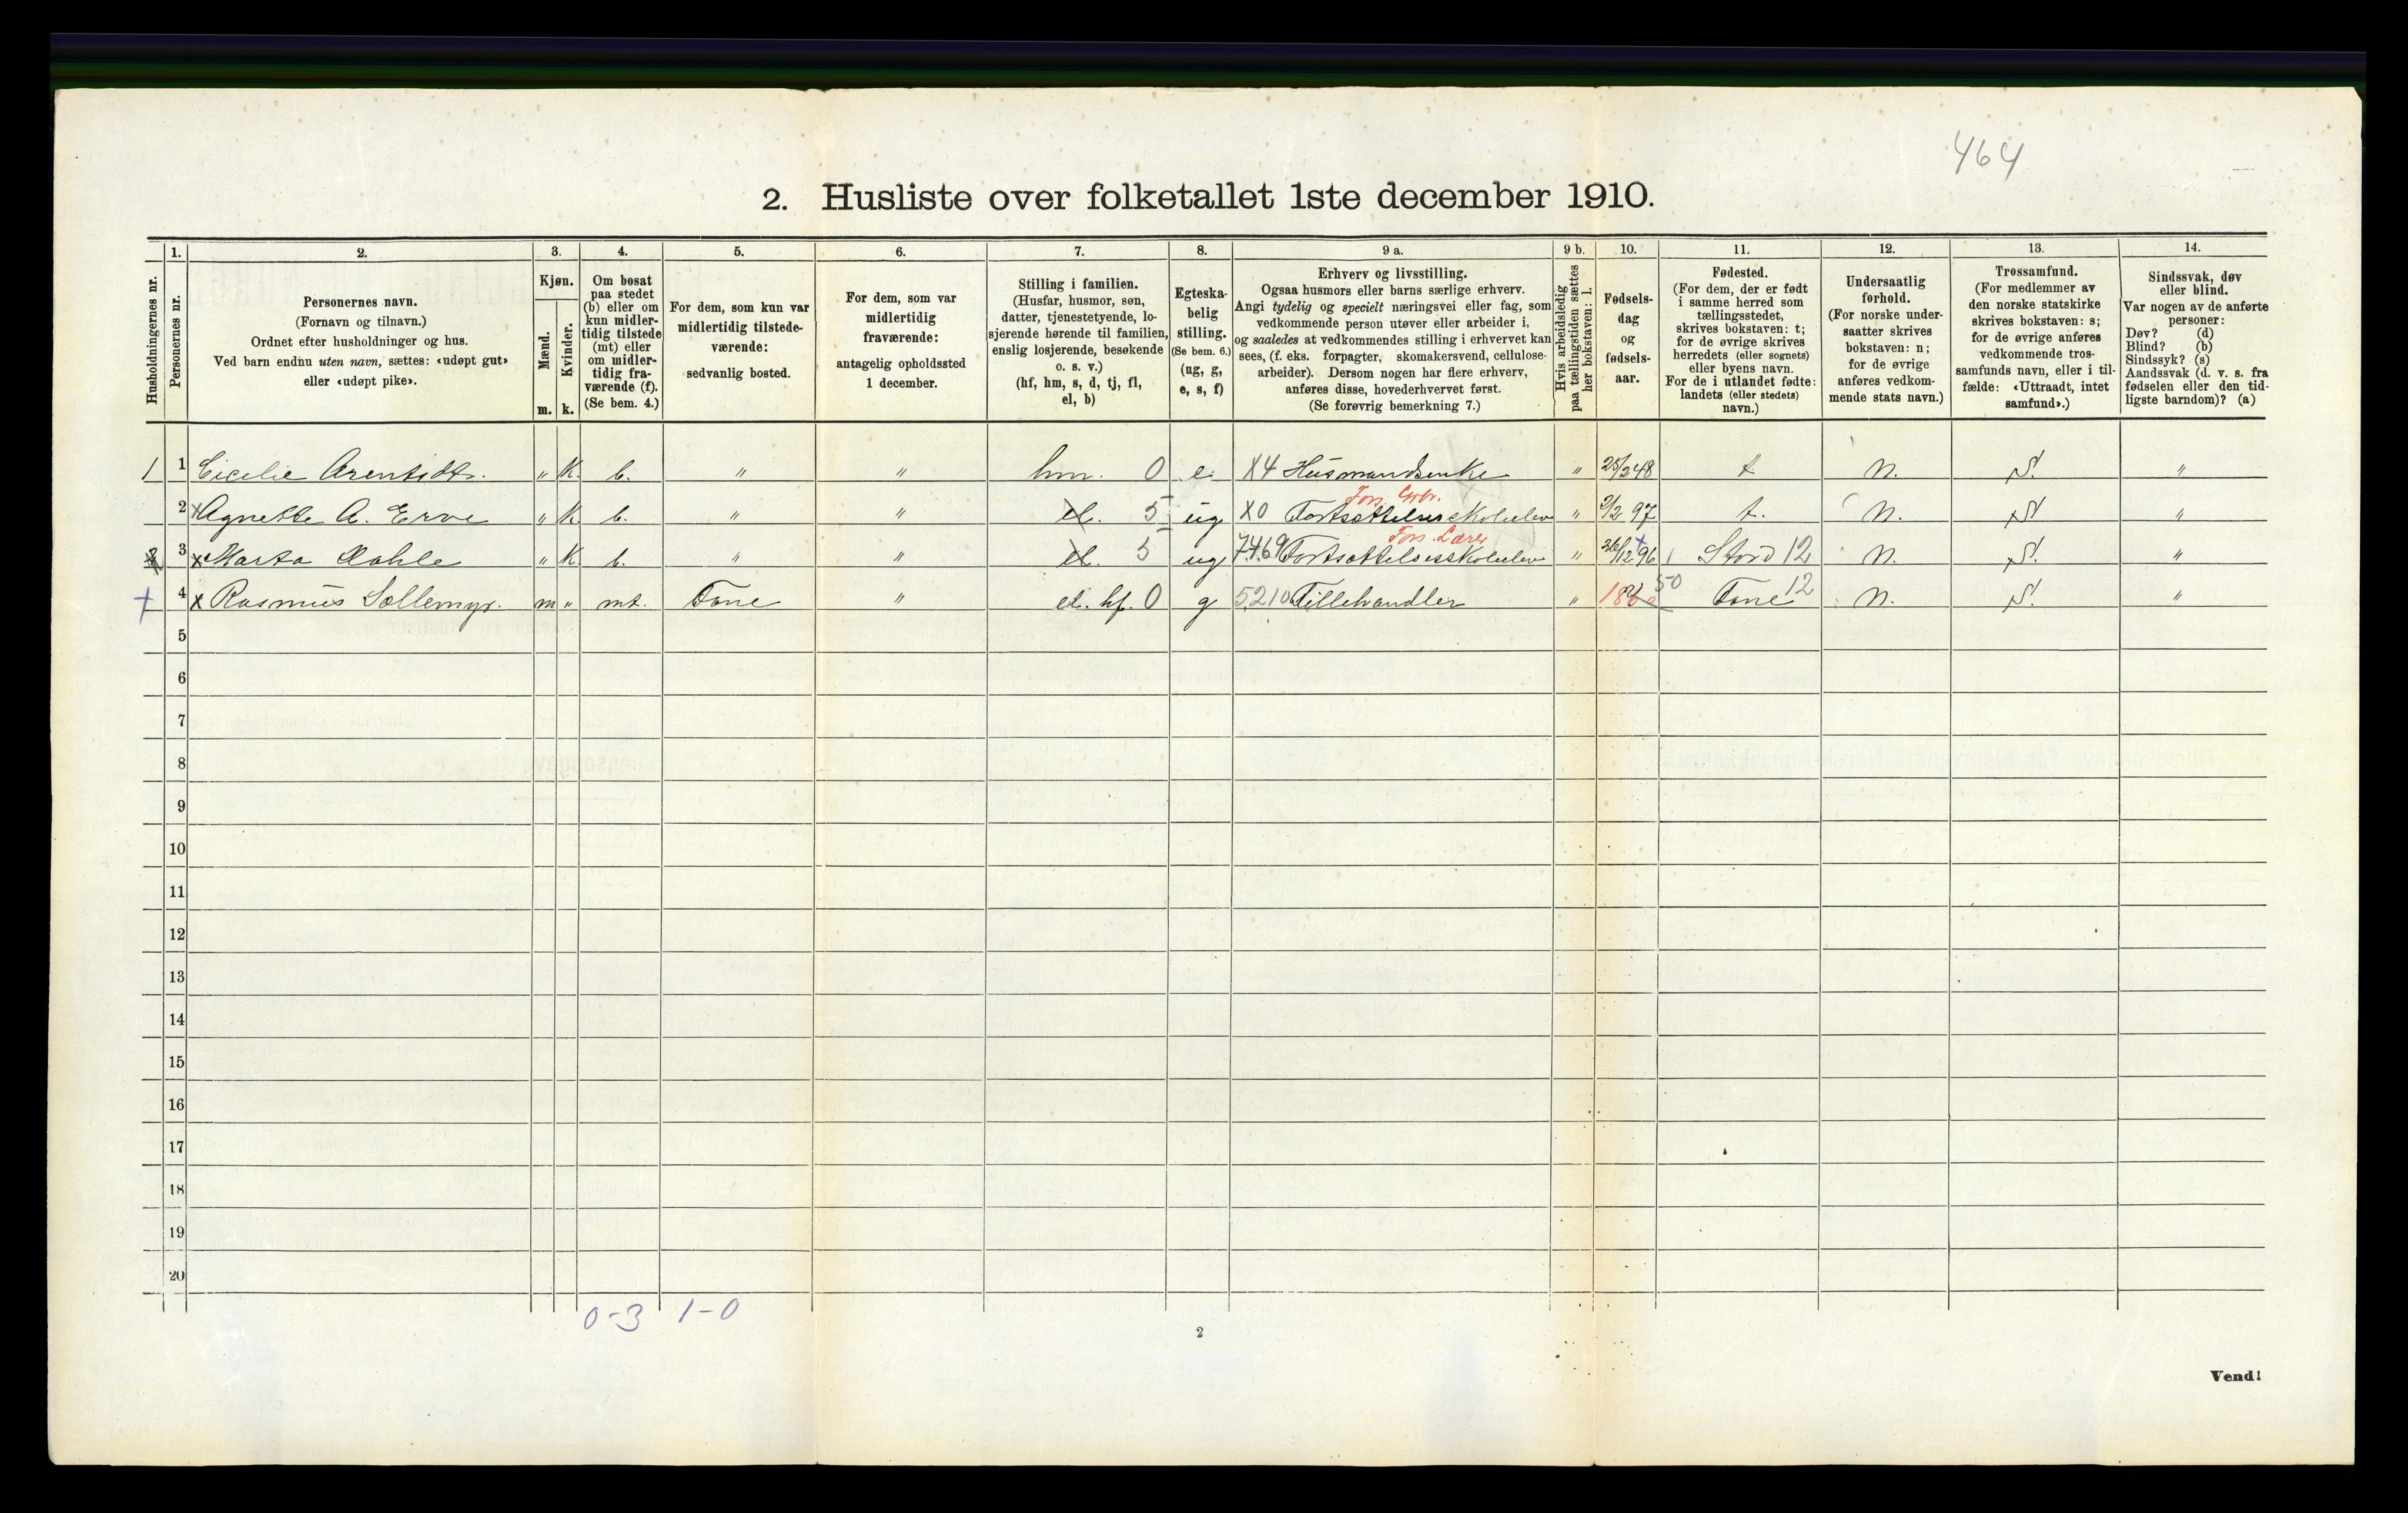 464
2. Husliste over folketallet 1ste december 1910.
Husholdningernes nr.
1.
Personernes nr.
2.
Personernes navn.
(Fornavn og tilnavn.)
Ordnet efter husholdninger og hus.
Ved barn endnu uten navn, sættes: «udøpt gut»
eller «udøpt pike».
3.
Kjøn.
Mænd.
Kvinder.
m. k.
4.
Om bosat
paa stedet
(b) eller om
kun midler-
tidig tilstede
(mt) eller
om midler-
tidig fra-
værende (f).
(Se bem. 4.)
5.
For dem, som kun var
midlertidig tilstede-
værende:
sedvanlig bosted.
6.
For dem, som var
midlertidig
fraværende:
antagelig opholdssted
1 december.
7.
Stilling i familien.
(Husfar, husmor, søn,
datter, tjenestetyende, lo-
sjerende hørende til familien,
enslig losjerende, besøkende
o. s. v.)
(hf, hm, s, d, tj, fl,
el, b)
8.
Egteska-
belig
stilling.
(Se bem. 6.)
(ug, g,
e, s, f)
9 a.
Erhverv og livsstilling.
Ogsaa husmors eller barns særlige erhverv.
Angi tydelig og specielt næringsvei eller fag, som
vedkommende person utøver eller arbeider i,
og saaledes at vedkommendes stilling i erhvervet kan
sees, (f. eks. forpagter, skomakersvend, cellulose-
arbeider). Dersom nogen har flere erhverv,
anføres disse, hovederhvervet først.
(Se forøvrig bemerkning 7.)
9 b.
Hvis arbeidsledig
paa tællingstiden sættes
her bokstaven: l.
10.
Fødsels-
dag
og
fødsels-
aar.
11.
Fødested.
(For dem, der er født
i samme herred som
tællingsstedet,
skrives bokstaven: t;
for de øvrige skrives
herredets (eller sognets)
eller byens navn.
For de i utlandet fødte:
landets (eller stedets)
navn.)
12.
Undersaatlig
forhold.
(For norske under-
saatter skrives
bokstaven: n;
for de øvrige
anføres vedkom-
mende stats navn.)
13.
Trossamfund.
(For medlemmer av
den norske statskirke
skrives bokstaven: s;
for de øvrige anføres
vedkommende tros-
samfunds navn, eller i til-
fælde: «Uttraadt, intet
samfund».)
14.
Sindssvak, døv
eller blind.
Var nogen av de anførte
personer:
Døv? (d)
Blind? (b)
Sindssyk? (s)
Aandssvak (d. v. s. fra
fødselen eller den tid-
ligste barndom)? (a)
1 1 Cicelie Arentsdtr. " K. b. " " hm. 0 e. X4 Husmandsenke " 25/2 48 t n. S. "
Fors. Grbr.
2 x Agnethe A. Erve " K b. " " el. 5 ug X0 Fortsættelsesskoleelev " 2/2 97 t. n. S "
Fors. Lærer
2 3 x Marta Dahle " K b. " " el. 5 ug 7469 Fortsættelsesskoleelev " 26/12 96 Stord 12 n. S. "
+ 4 x Rasmus Sollemyr. m " mt. Fane " el. hf. 0 g 5210 Fillehandler " 50 Fane 12 n. S. "
5
6
7
8
9
10
11
12
13
14
15
16
17
18
19
20
0-3 1-0
2
Vend!